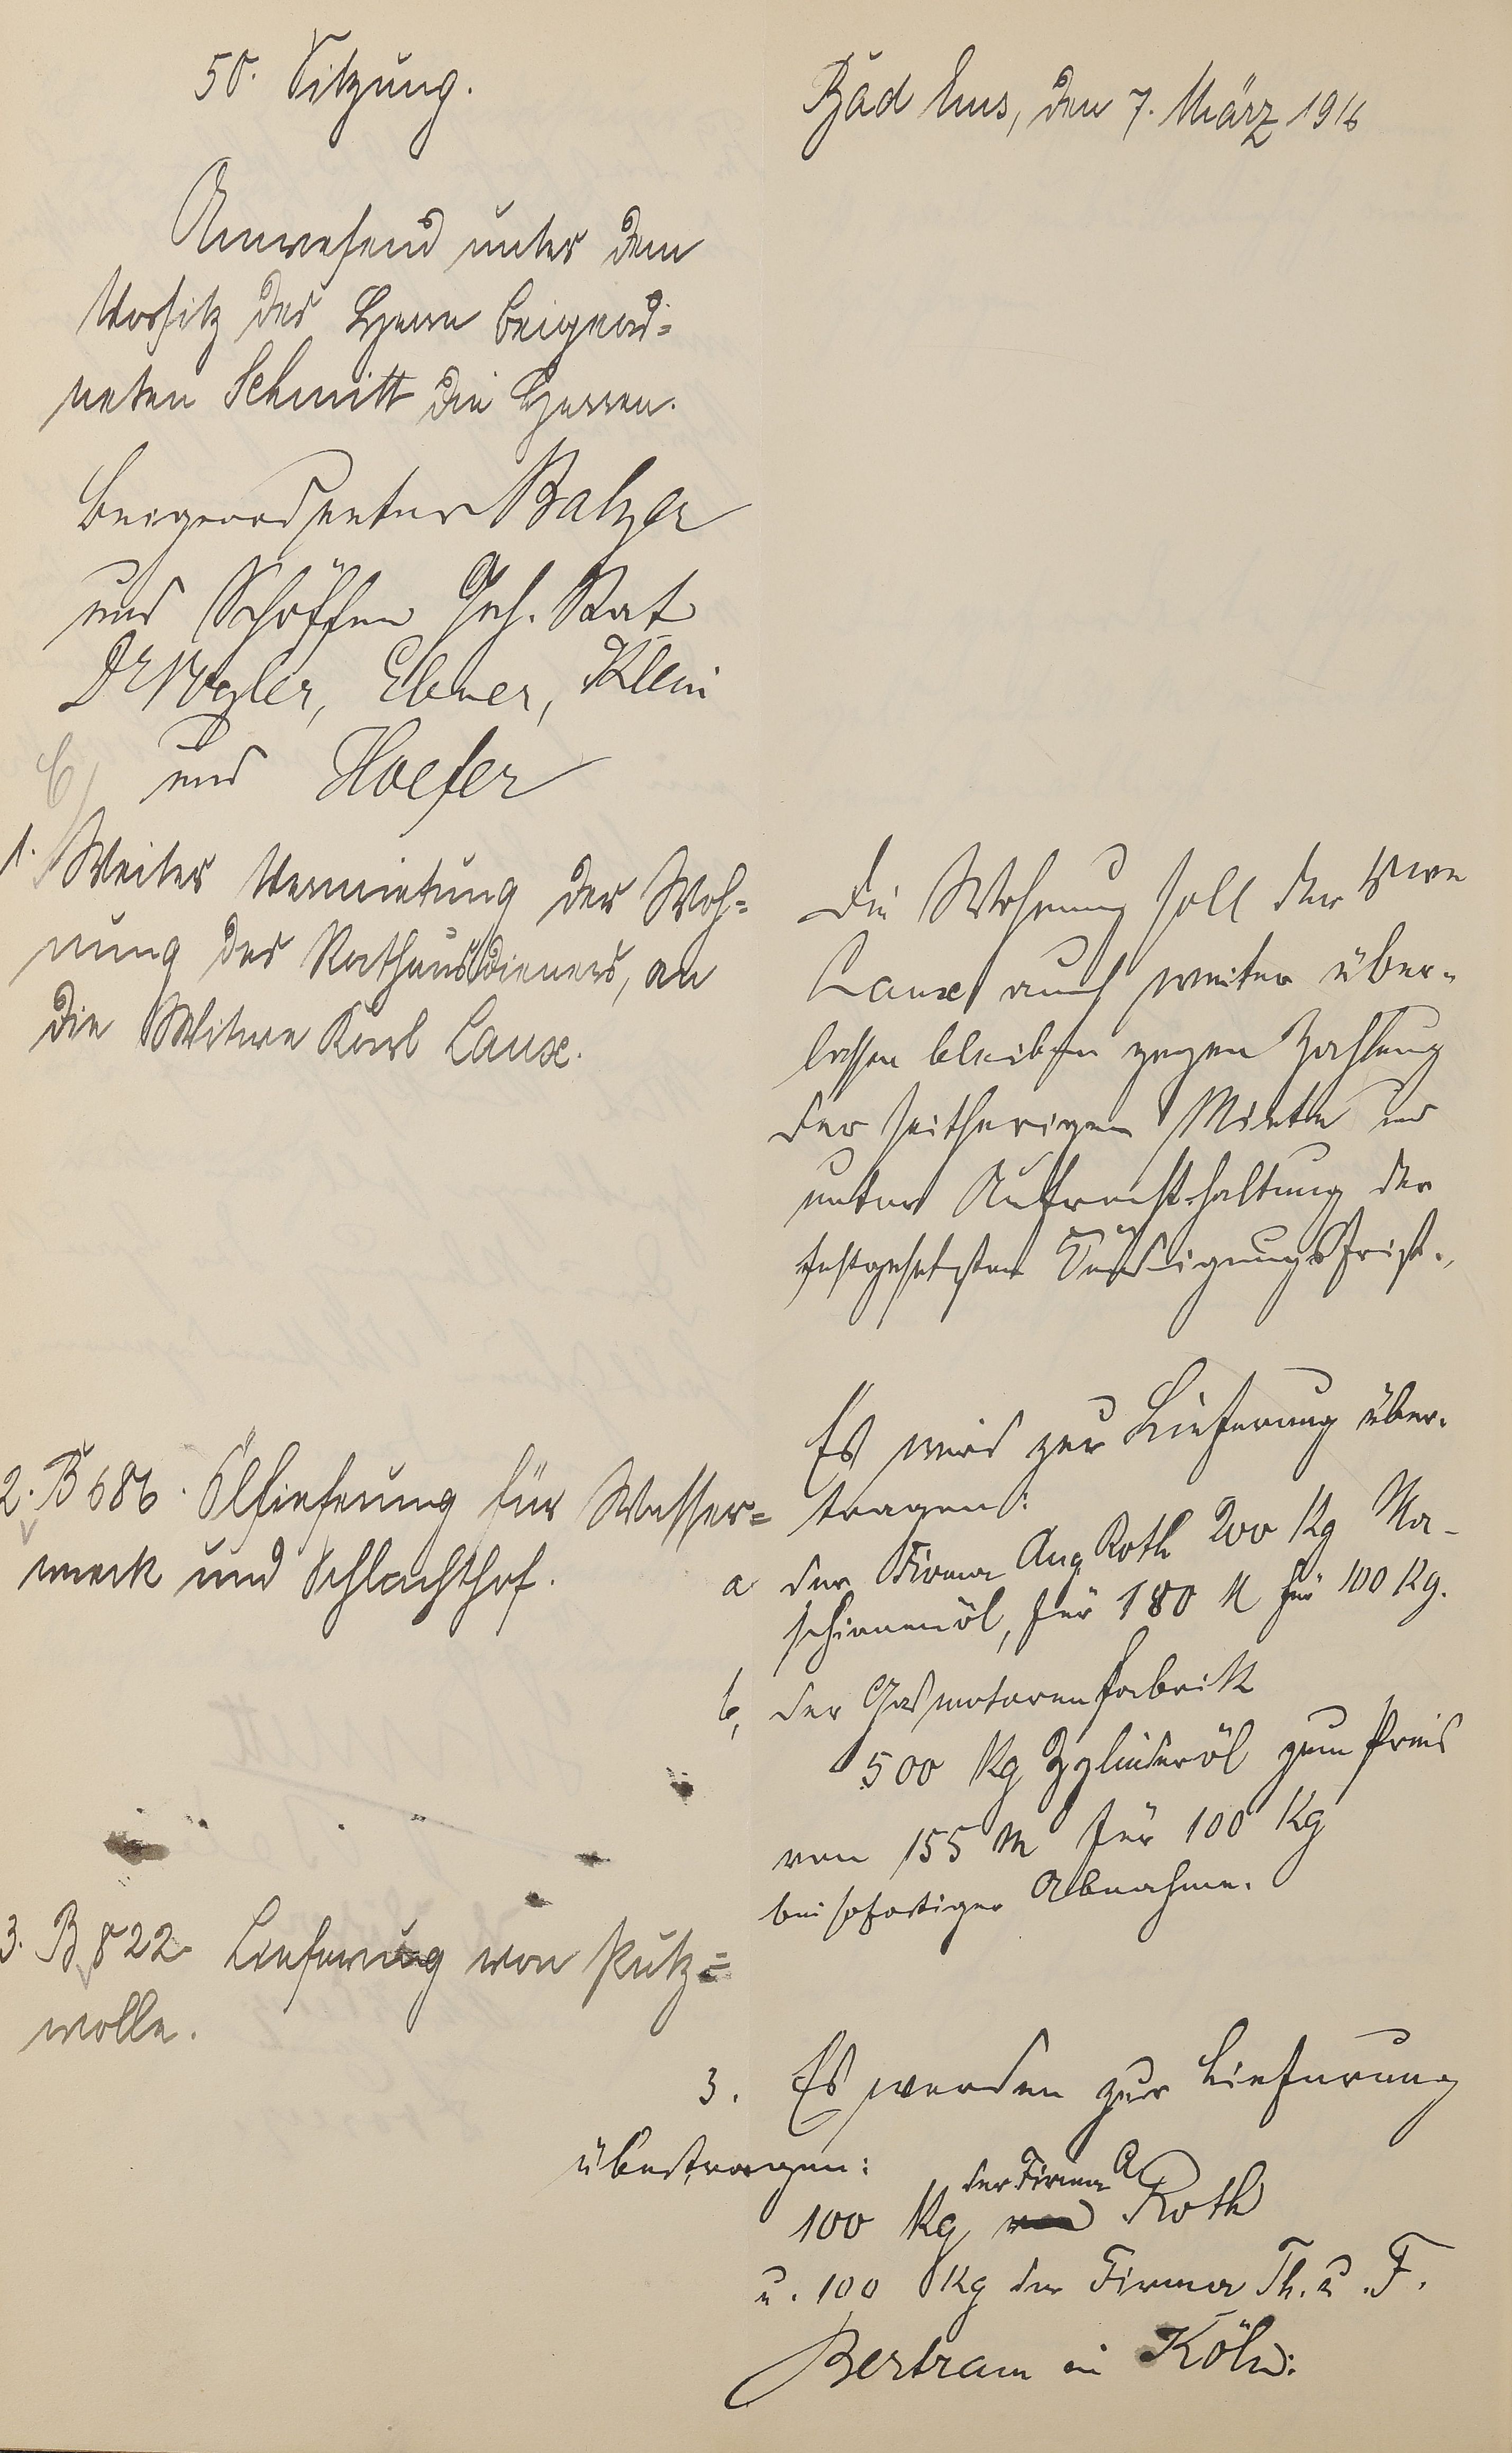 50. Sitzung.
Bad Ems, den 7. März 1916
Anwesend unter dem
Vorsitz des Herrn Beigeord=
neten Schmitt die Herren.
Beigeordneter Balzer
und Schöffen Geh. Rat
Dr Vogler, Ebner, Klein
und Hoefer
1. Weiter Vermietung der Woh=
nung des Rathausdieners, an
die Witwe Karl Laux.
Die Wohnung soll der Wwe
Laux auch weiter über-
lassen bleiben gegen Zahlung
der seitherigen Miete und
unter Aufrechthaltung der
festgesetzten Kündigungsfrist.
2. B 686. Öllieferung für Wasser=
werk und Schlachthof.
Es wird zur Lieferung über-
tragen:
a der Firma Aug Roth 200 Kg Ma-
schinenöl, für 180 M für 100 Kg.
b, der Gasmotorenfabrik
500 Kg Zylinderöl zum Preis
von 155 M für 100 Kg
bei sofortiger Abnahme.
3. B 822 Lieferung von Putz=
wolle.
3. Es werden zur Lieferung
übertragen:
100 Kg der Firma A Roth
u. 100 Kg der Firma Th. u. F.
Bertram in Köln.